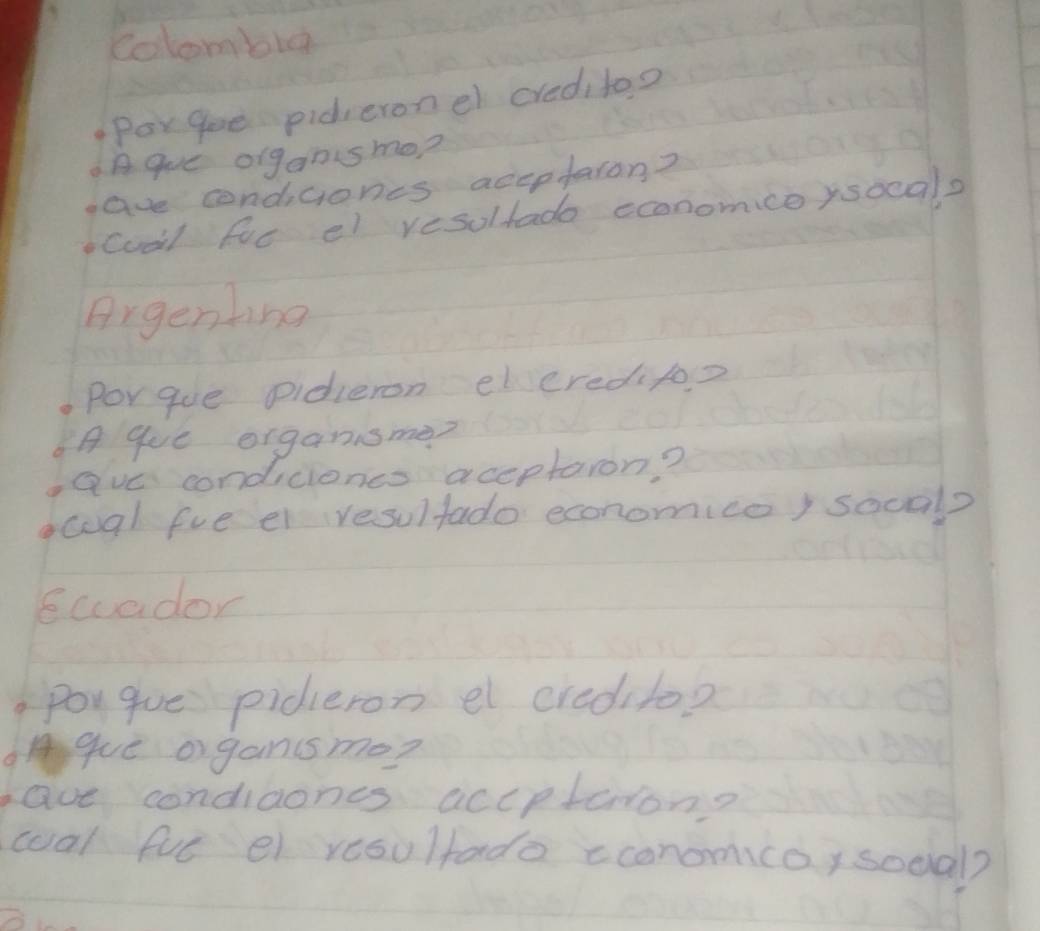 Colombia
• Por que pidieron el credito?
• A que organismo?
• Que condiciones acceptaron?
• Cuál fue el resultado economico y socal?
Argentina
• Por que pidieron el credito?
• A que organismo?
• Que condiciones aceptaron?
• cual fue el resultado economico y socal?
Ecuador
• Por que pidieron el credito?
• A que organismo?
• Que condiciones acceptaron?
cual fue el resultado economico y social?